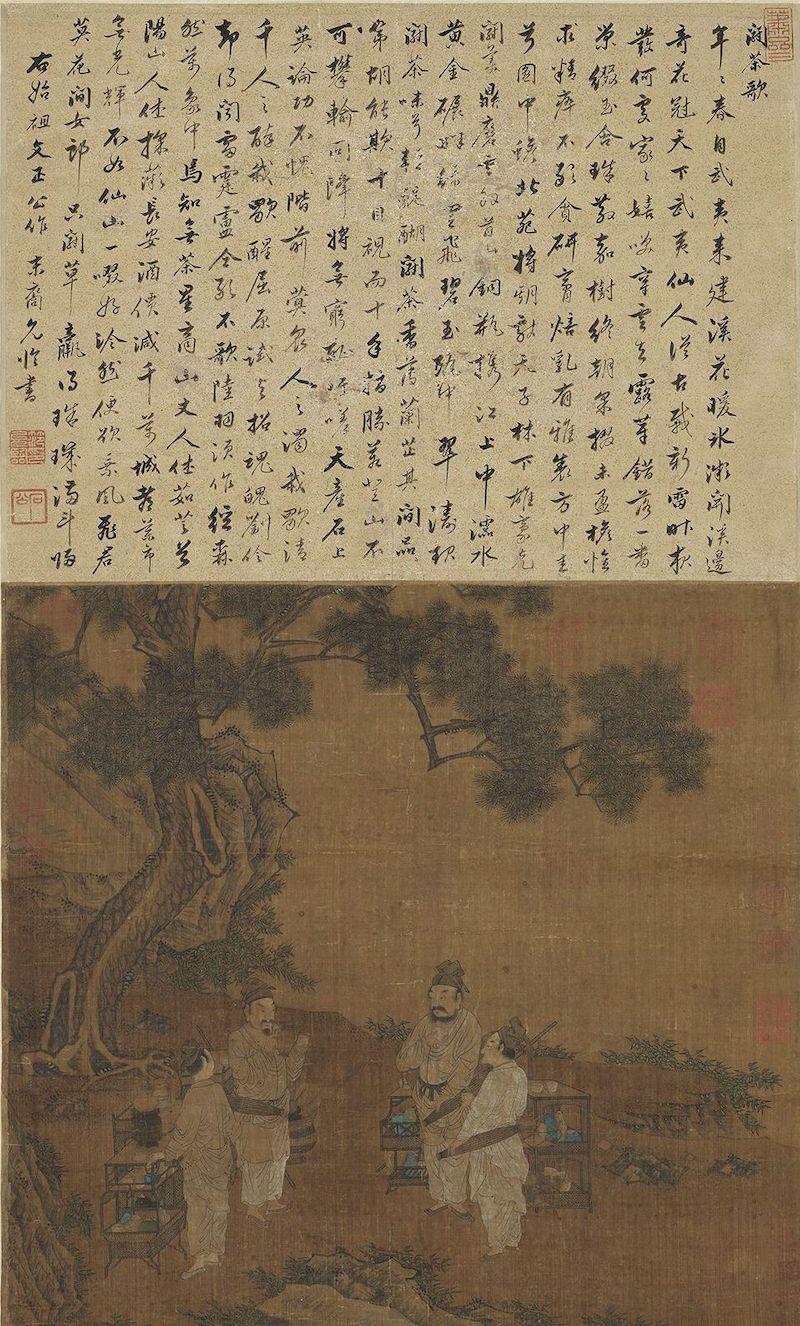 閗茶歌
年〻春自武夷来建溪花暖氷漸開溪邊
奇花冠天下武夷仙人從古栽新雷昨夜
發何處家〻嬉笑穿雲去露芽錯落一番
榮綴玉含珠散嘉樹終朝采掇未盈襜惟
求精粹不敢貪研膏焙乳有雅製方中圭
兮圓中蟾北苑將期獻天子林下雄豪先
閗美鼎磨雲外首山銅瓶携江上中濡水
黃金碾畔綠塵飛碧玉甌中翠濤起
閗茶味兮輕醍醐閗茶香薄蘭芷其間品
第胡能欺十目視而十手指勝若登山不
可攀輸同降將無窮恥吁嗟天產石上
英論功不愧階前蓂衆人之濁我歌清
千人之醉我歌醒屈原試与招魂魄劉伶
却得聞雷霆盧仝敢不歌陸羽須作經森
然萬象中焉知無茶星商山丈人休茹芝首
陽山人休採薇長安酒價減千萬城都藥市
無光輝不如仙山一啜好泠然便欲乘風飛君
莫花間女郎只閗草贏得珠璣滿斗歸
右始祖文正公作末裔允临書